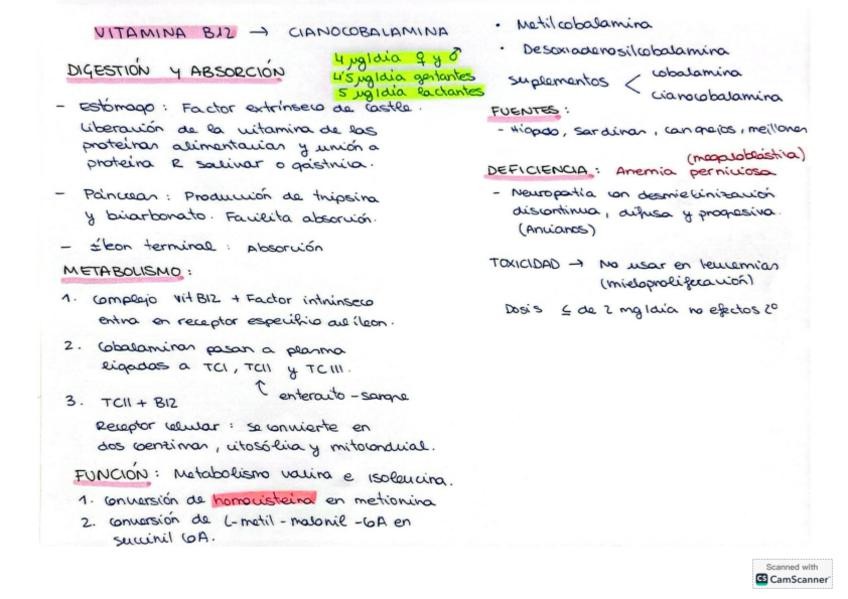 VITAMINA B12 → CIANOCOBALAMINA
4 µg/día ♀ y ♂
4'5 µg/día gestantes
5 µg/día lactantes
DIGESTIÓN y ABSORCIÓN
- Estómago: Factor extrínseco de Castle.
Liberación de la vitamina de las
proteínas alimentarias y unión a
proteína R salivar o gástrica.
- Páncreas: Producción de tripsina
y bicarbonato. Facilita absorción.
- Íleon terminal: Absorción
METABOLISMO:
1. Complejo vit B12 + Factor intrínseco
entra en receptor específico del íleon.
2. Cobalaminas pasan a plasma
ligadas a TCI, TCII y TCIII.
↑ enterocito - sangre
3. TCII + B12
Receptor celular: se convierte en
dos coenzimas, citosólica y mitocondrial.
FUNCIÓN: Metabolismo valina e isoleucina.
1. Conversión de homocisteína en metionina
2. Conversión de L-metil-malonil-CoA en
succinil CoA.
• Metilcobalamina
• Desoxiadenosilcobalamina
suplementos < cobalamina
cianocobalamina
FUENTES:
- Hígado, sardinas, cangrejos, mejillones
DEFICIENCIA: Anemia perniciosa
(megaloblástica)
- Neuropatía con desmielinización
discontinua, difusa y progresiva.
(Ancianos)
TOXICIDAD → No usar en leucemias
(mieloproliferación)
Dosis ≤ de 2 mg/día no efectos 2º
Scanned with
CS CamScanner